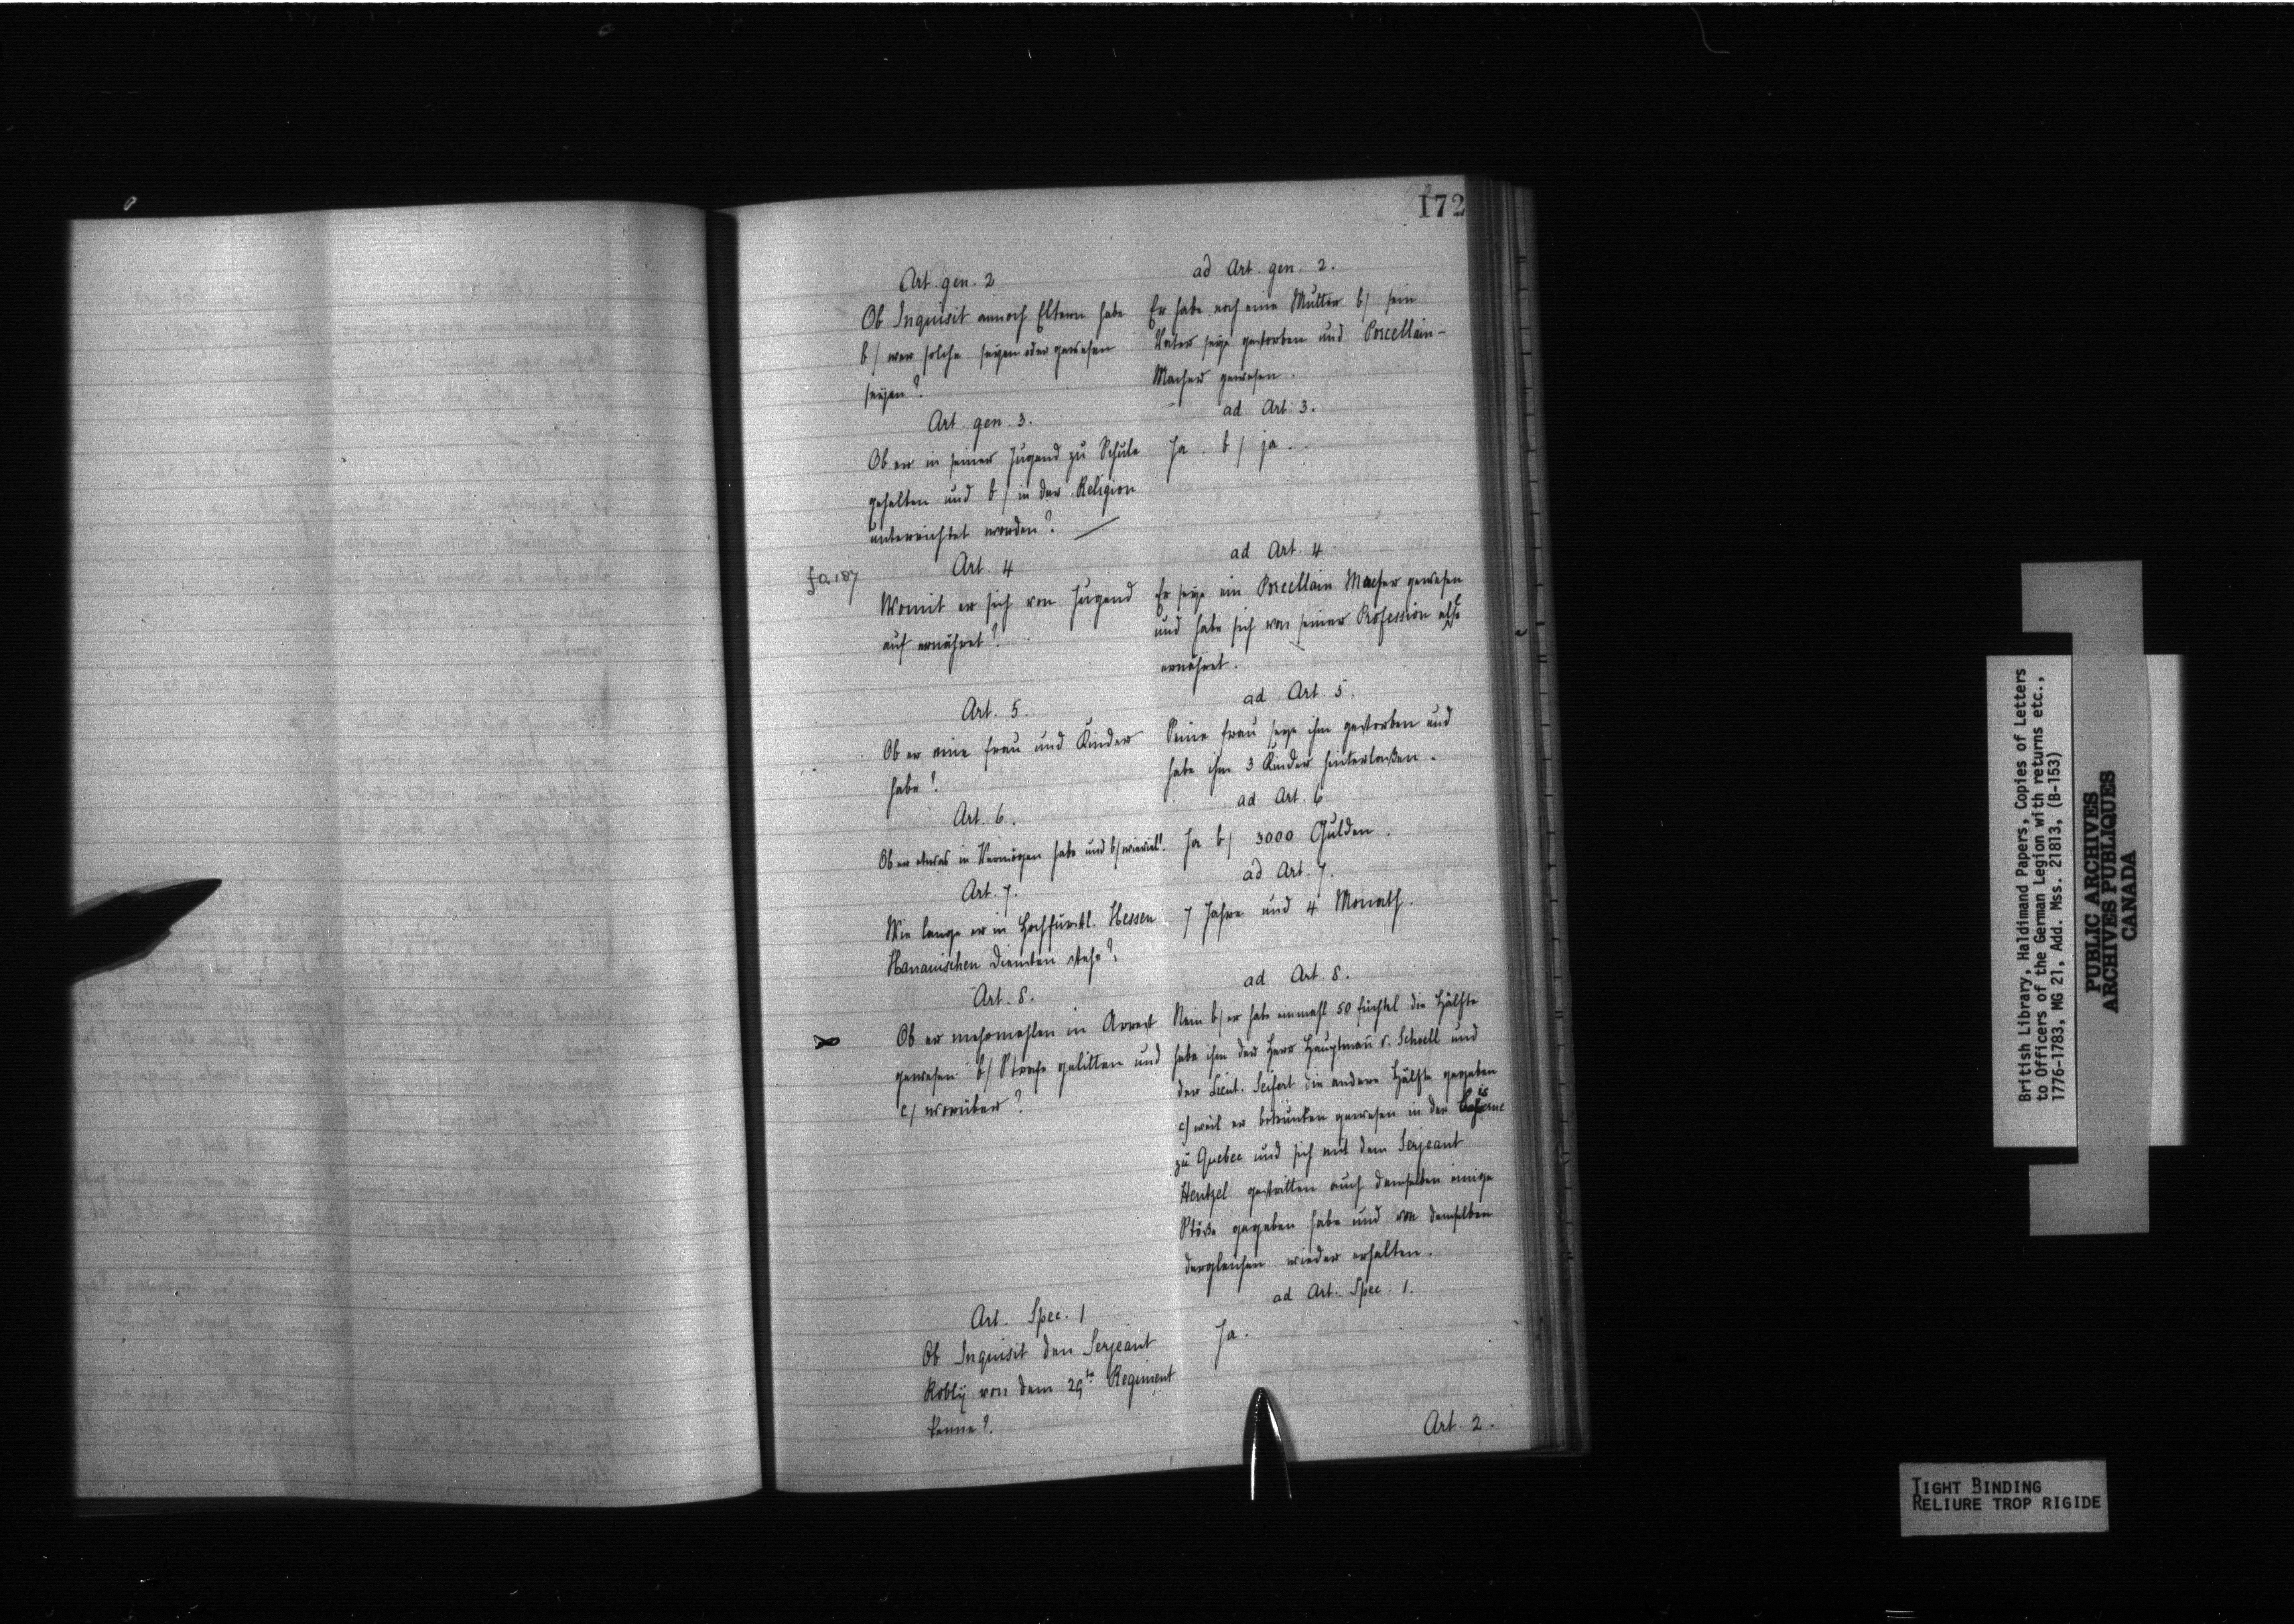 172
Art. gen. 2
Ob Inquisit annoch Eltern habe
b/ wer solche seyen oder gewesen
seyen?
ad Art. gen. 2.
Er habe noch eine Mutter b/ sein
Vater seye gestorben und Porcellain-
Macher gewesen.
Art. gen. 3.
Ob er in seiner Jugend zu Schule
gehalten und b/ in der Religion
unterrichtet worden?
ad Art. 3.
Ja. b/ ja.
fo. 187
Art. 4
Womit er sich von Jugend
auf ernähret?
ad Art. 4
Er seye ein Porcellain Macher gewesen
und habe sich von seiner Profession also
ernähret.
Art. 5.
Ob er eine Frau und Kinder
habe?
ad Art. 5.
Seine Frau seye ihm gestorben und
habe ihm 3 Kinder hinterlaßen.
Art. 6.
Ob er etwas in Vermögen habe und b/ wieviel?
ad Art. 6
Ja b/ 3000 Gulden.
Art. 7.
Wie lange er in Hochfürstl. Hessen
Hanauischen Diensten stehe?
ad Art. 7.
7 Jahre und 4 Monath.
Art. 8.
Ob er mehrmahlen in Arrest
gewesen b/ Strafe gelitten und
c/ worüber?
ad Art. 8.
Nein b/ er habe einmahl 50 Fuchtel die Hälfte
habe ihm der Herr Hauptmañ v. Schoell und
der Lieut. Seifert die andere Hälfte gegeben
c/ weil er betrunken gewesen in der
zu Quebec und sich mit dem Serjeant
Hentzel gestritten auch demselben einige
Stöße gegeben habe und von demselben
dergleichen wieder erhalten.
Art. Spec. 1
Ob Inquisit den Serjeant
Robly von dem 29tn Regiment
kenne?
ad Art. Spec. 1.
Ja.
Art. 2.
British Library, Haldimand Papers, Copies of Letters
to Officers of the German Legion with returns etc.,
1776-1783, MG 21, Add. Mss. 21813, (B-153)
PUBLIC ARCHIVES
ARCHIVES PUBLIQUES
CANADA
TIGHT BINDING
RELIURE TROP RIGIDE